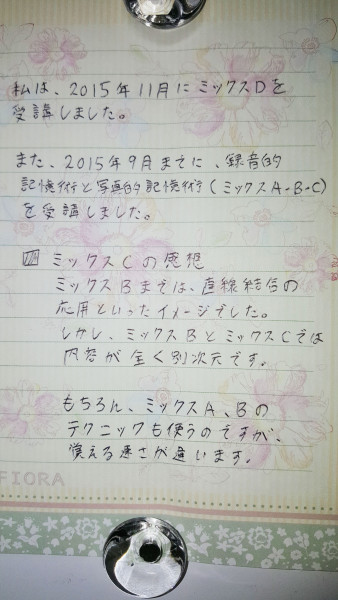 私は、2015年11月にミックスDを
受講しました。
また、2015年9月までに、録音的
記憶術と写真的記憶術(ミックスA・B・C)
を受講しました。
ミックスCの感想
ミックスBまでは、直線結合の
応用といったイメージでした。
しかし、ミックスBとミックスCでは
内容が全く別次元です。
もちろん、ミックスA、Bの
テクニックも使うのですが、
覚える速さが違います。
FIORA